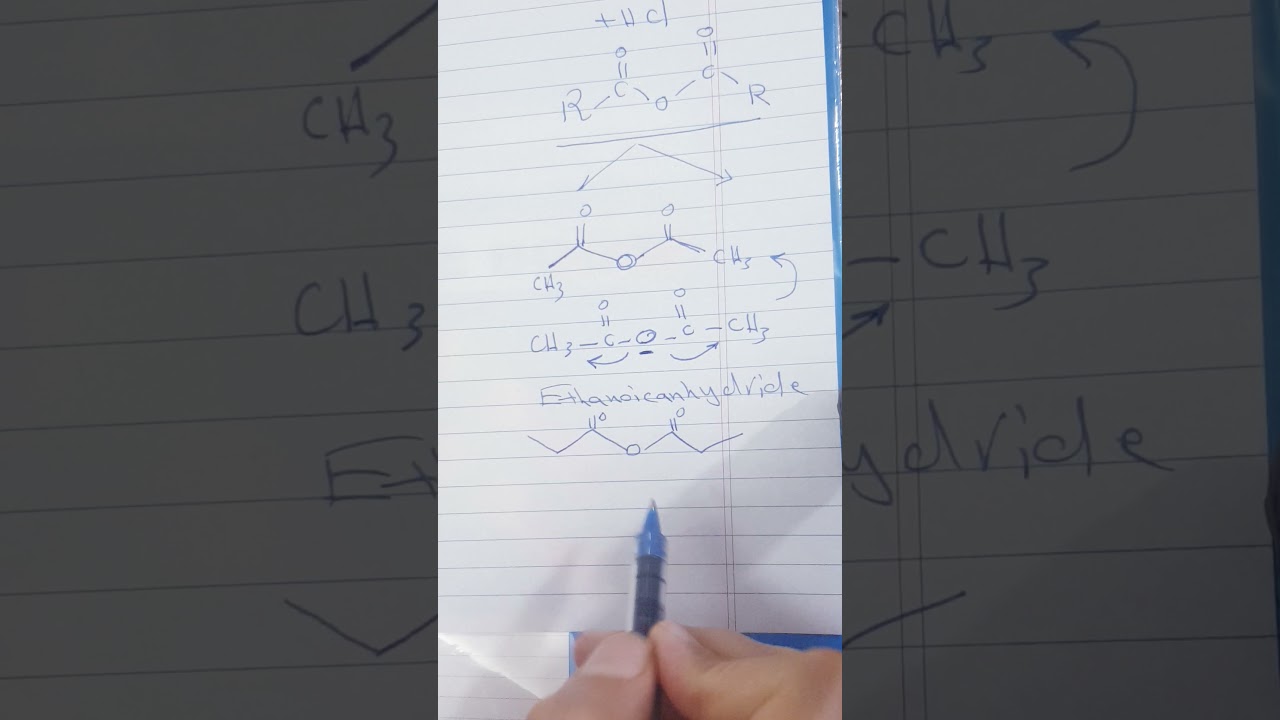 + H Cl
O O
|| ||
R C O C R
O O
CH3 O CH3
O O
|| ||
CH3 – C – O – C – CH3
Ethanoicanhydride
O O
O